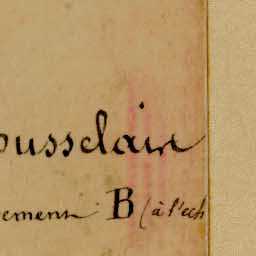 ousselain
ement B (à l'ech